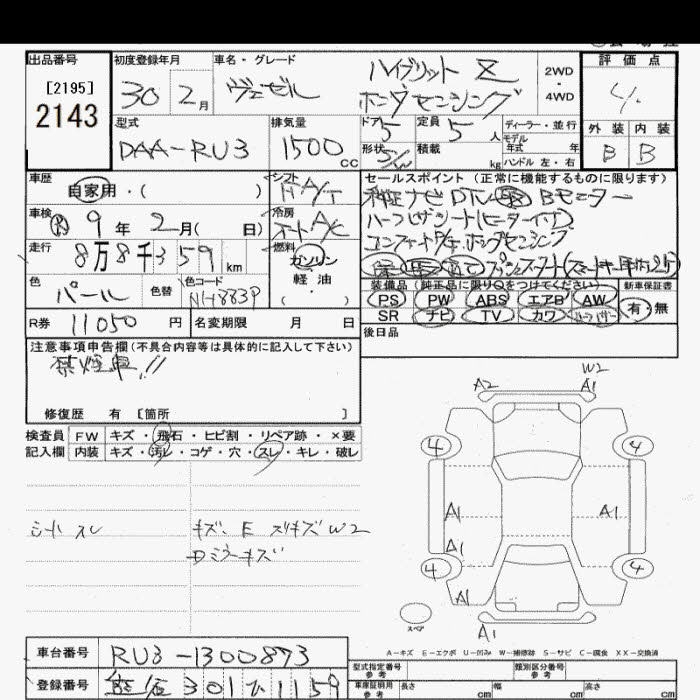 出品番号 初度登録年月 車名・グレード ハイブリット Z 2WD・4WD 評価点
[2195]
2143 30 2月 ヴェゼル ホンダセンシング 4.
型式 排気量 ドア 5 定員 5人 ディーラー・並行 外装 内装
DAA-RU3 1500cc 形状 S/W 積載 kg モデル年式 年 ハンドル 左・右 B B
車歴 シフト セールスポイント (正常に機能するものに限ります)
自家用・( ) F A/T 純正ナビ DTV Bモニター
車検 R9年 2月( 日) 冷房 オートA/C ハーフレザーシート(ヒーター付)
走行 8万8千359km 燃料 ガソリン
色 パール 色替 色コード NH883P 軽油 ( ) 装備品 (純正品に限りOをつけてください) 新車保証書
PS PW ABS エアB AW 有・無
R券 11050円 名変期限 月 日 SR ナビ TV カワ
後日品
注意事項申告欄(不具合内容等は具体的に記入して下さい)
禁煙車!!
修復歴 有 [箇所 ]
検査員 FW キズ・飛石・ヒビ割・リペア跡・×要
記入欄 内装 キズ・汚レ・コゲ・穴・スレ・キレ・破レ
A2 W2 A1
4 4
A1 A1
A1
4 4
A1
A1
スペア
シートスレ キズ、E スリキズW2
Dミラーキズ
A-キズ E-エクボ U-凹み W-補修跡 S-サビ C-腐食 XX-交換済
車台番号 RU3-1300873 型式指定番号 参考 類別区分番号 参考
登録番号 301 1159 車庫証明用 参考 長さ cm 幅 cm 高さ cm